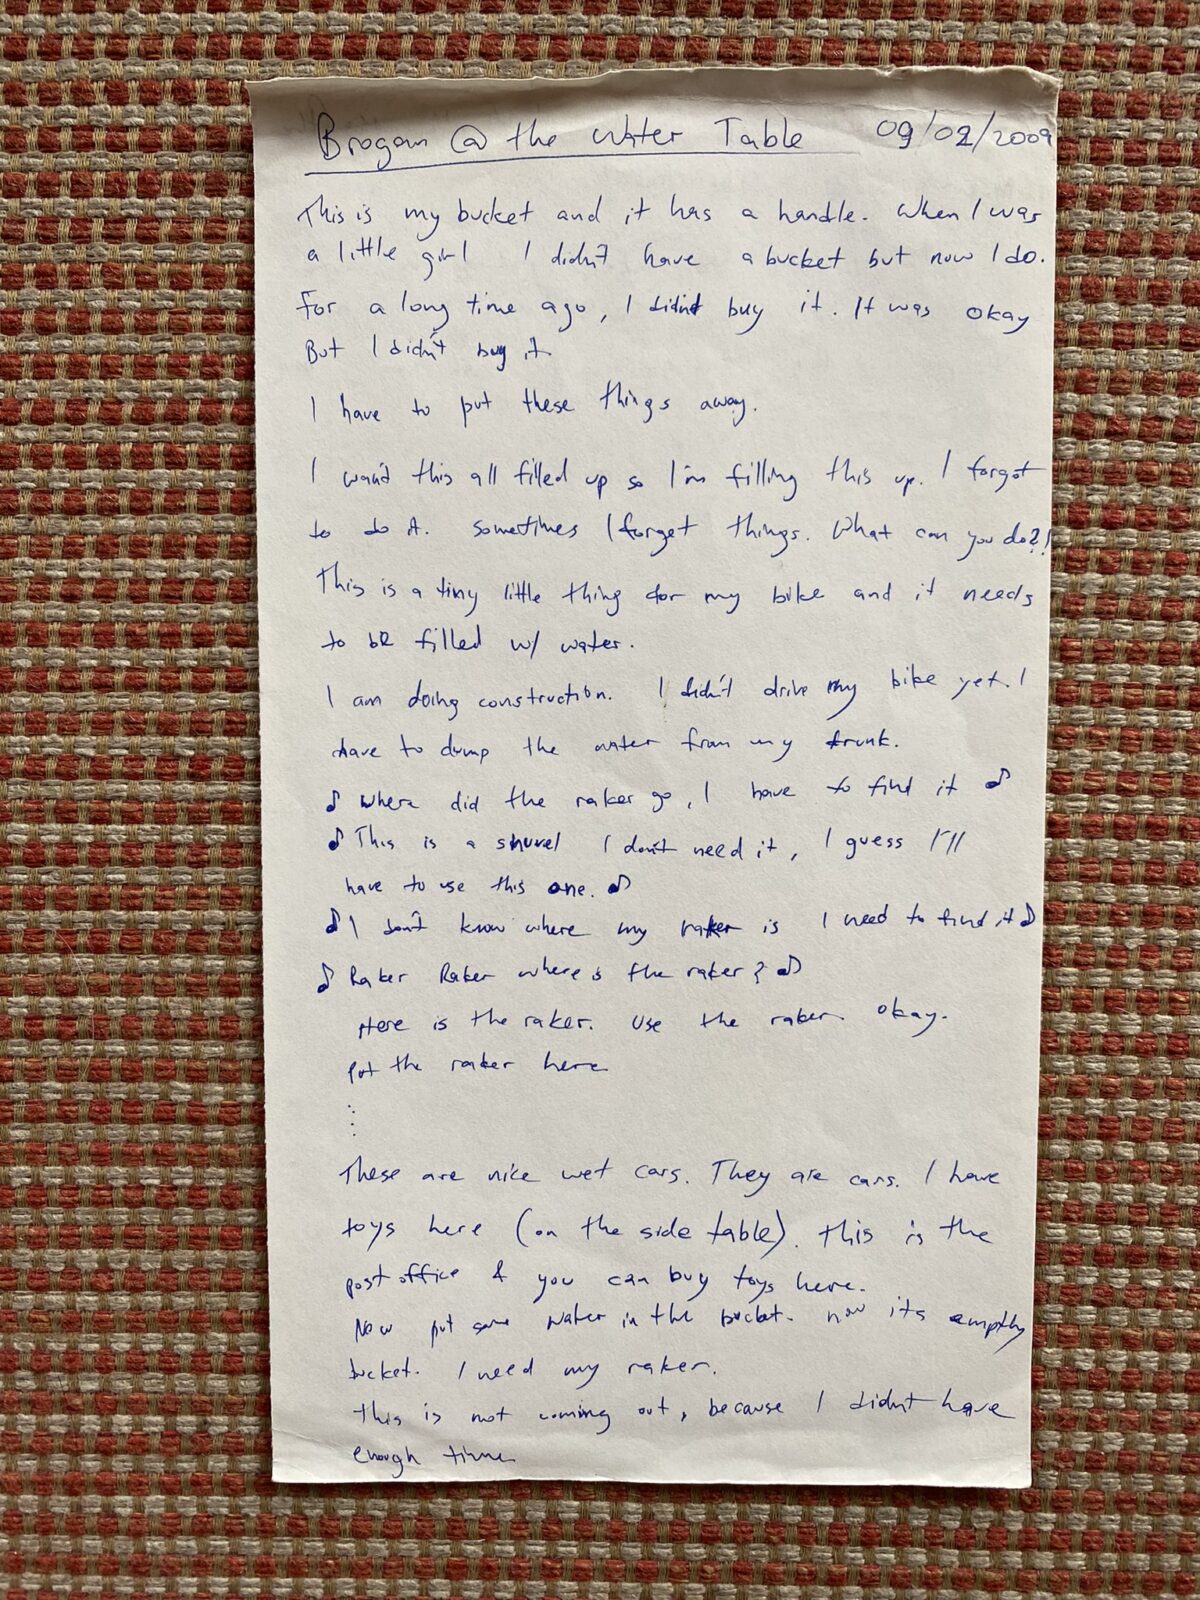 Brogan @ the Water Table 09/02/2009
This is my bucket and it has a handle. When I was
a little girl I didn't have a bucket but now I do.
For a long time ago, I didn't buy it. It was okay
But I didn't buy it.
I have to put these things away.
I want this all filled up so I'm filling this up. I forgot
to do it. Sometimes I forget things. What can you do?!
This is a tiny little thing for my bike and it needs
to be filled w/ water.
I am doing construction. I didn't drive my bike yet. I
have to dump the water from my trunk.
♪ Where did the raker go, I have to find it ♪
♪ This is a shuvel I don't need it, I guess I'll
have to use this one. ♪
♪ I don't know where my raker is I need to find it ♪
♪ Raker Raker where is the raker? ♪
Here is the raker. Use the raker. Okay.
Put the raker here
⋮
These are nice wet cars. They are cars. I have
toys here (on the side table). This is the
post office & you can buy toys here.
Now put some water in the bucket. now its empthy
bucket. I need my raker.
This is not coming out, because I didn't have
enough time